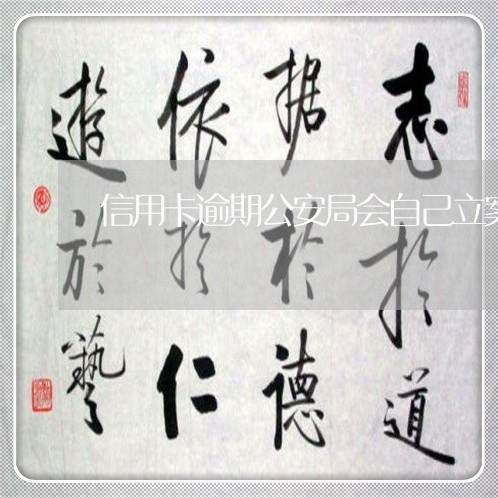 志於道
据於德
依於仁
遊於藝
信用卡逾期公安局会自己立案